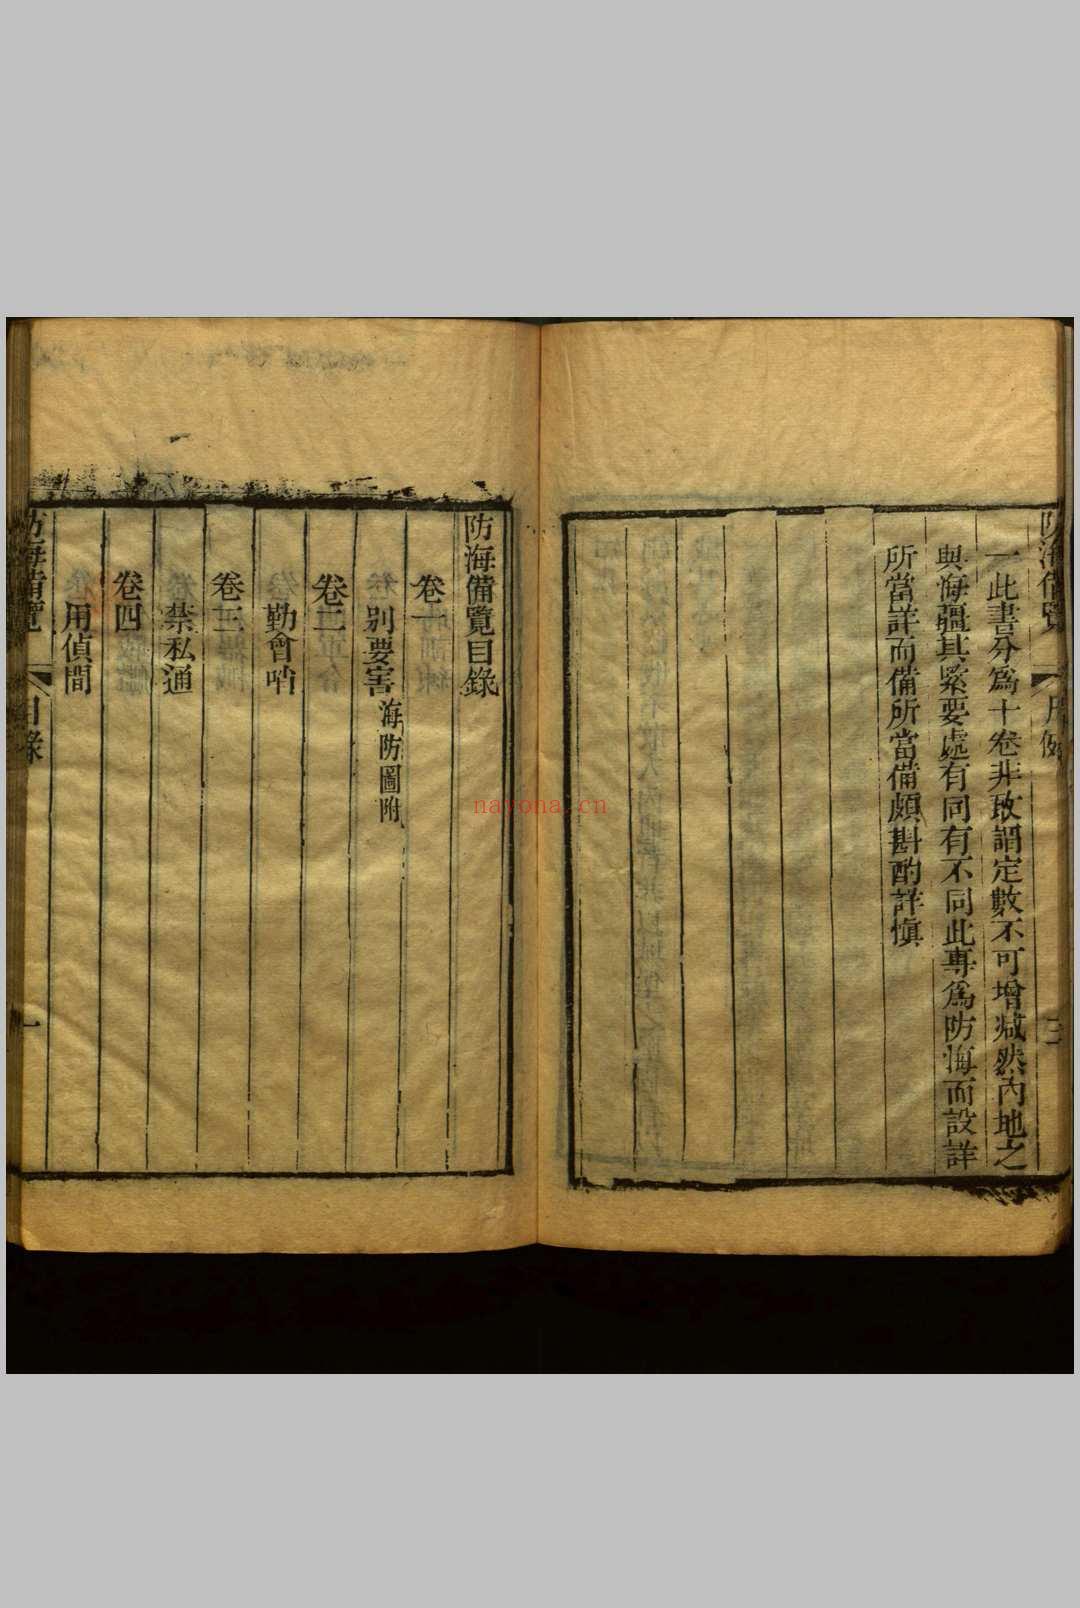 防海備覽
凡例
三
一此書分爲十卷非敢謂定數不可增減然內地之
與海疆其緊要處有同有不同此專爲防海而設詳
所當詳而備所當備頗斟酌詳慎
防海備覽目錄
卷一
別要害海防圖附
卷二
勤會哨
卷三
禁私通
卷四
用偵間
防海備覽
目錄
一
nayona.cn